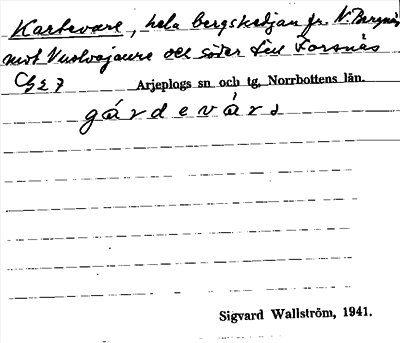 Kartevare, hela bergskedjan fr. N. Bergnäs
mot Vuolvojaure och söder till Forsnäs
C62 7 Arjeplogs sn och tg, Norrbottens län.
gárdevárɜ
Sigvard Wallström, 1941.